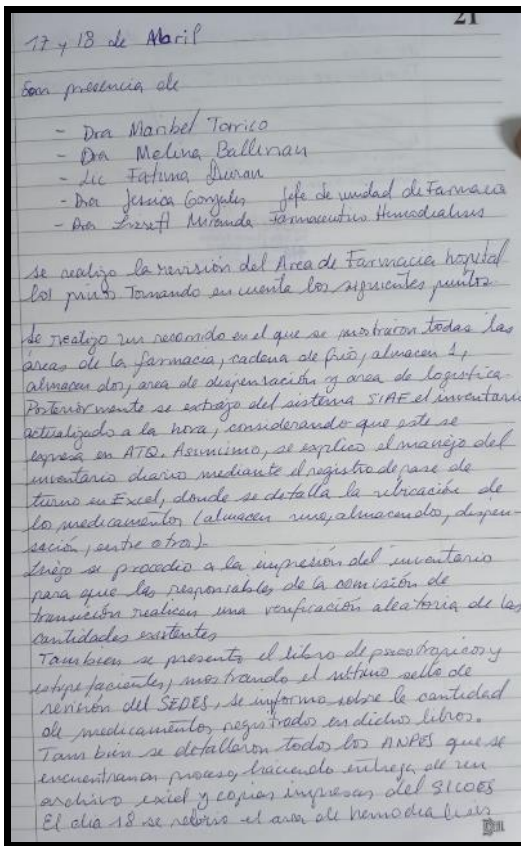 21
17 y 18 de Abril
Con presencia de
- Dra Maribel Torrico
- Dra Melina Ballivian
- Lic Fatima Duran
- Dra Jessica Gonzales Jefe de unidad de Farmacia
- Dra Lizett Miranda Farmaceutico Hemodialisis
se realizo la revisión del Área de Farmacia hospital
los pinos Tomando en cuenta los siguientes puntos
Se realizo un recorrido en el que se mostraron todas las
áreas de la farmacia, cadena de frio, almacen 1,
almacen dos, area de dispensación y area de logistica.
Posteriormente se extrajo del sistema SIAF el inventario
actualizado a la hora, considerando que este se
expresa en ATQ. Asimismo, se explico el manejo del
inventario diario mediante el registro de pase de
turno en Excel, donde se detalla la ubicación de
los medicamentos (almacen uno, almacen dos, dispen-
sación, entre otra).
Luego se procedio a la impresión del inventario
para que las responsables de la comisión de
transición realicen una verificación aleatoria de las
cantidades existentes
Tambien se presento el libro de psicotropicos y
estupefacientes, mostrando el ultimo sello de
revisión del SEDES, se informo sobre la cantidad
de medicamentos registrados en dichos libros.
Tambien se detallaron todos los ANPES que se
encuentran en proceso, haciendo entrega de un
archivo exiel y copias impresas del SICOES
El dia 18 se el area de hemodialisis